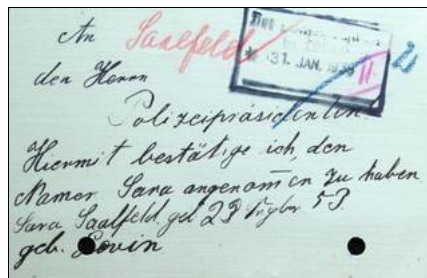 An Saalfeld
31. JAN. 1939
den Herrn
Polizeipräsidenten
Hiermit bestätige ich, den
Namen Sara angenommen zu haben
Sara Saalfeld, geb 23 53
geb. Lovin